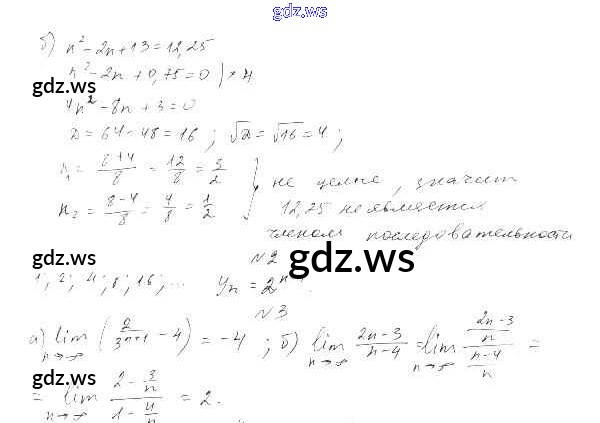 gdz.ws
б) n² - 2n + 13 = 12,25
n² - 2n + 0,75 = 0 | × 4
gdz.ws
4n² - 8n + 3 = 0
D = 64 - 48 = 16 ; √D = √16 = 4 ;
n₁ = (8+4)/8 = 12/8 = 3/2
n₂ = (8-4)/8 = 4/8 = 1/2
не целые, значит
12,25 не является
членом последовательности
gdz.ws
N2
gdz.ws
1; 2; 4; 8; 16; ... yₙ = 2ⁿ
N3
а) lim n→∞ (2/3ⁿ⁺¹ - 4) = -4 ; б) lim n→∞ (2n-3)/(n-4) = lim n→∞ ((2n-3)/n)/((n-4)/n) =
gdz.ws
= lim n→∞ (2 - 3/n)/(1 - 4/n) = 2.